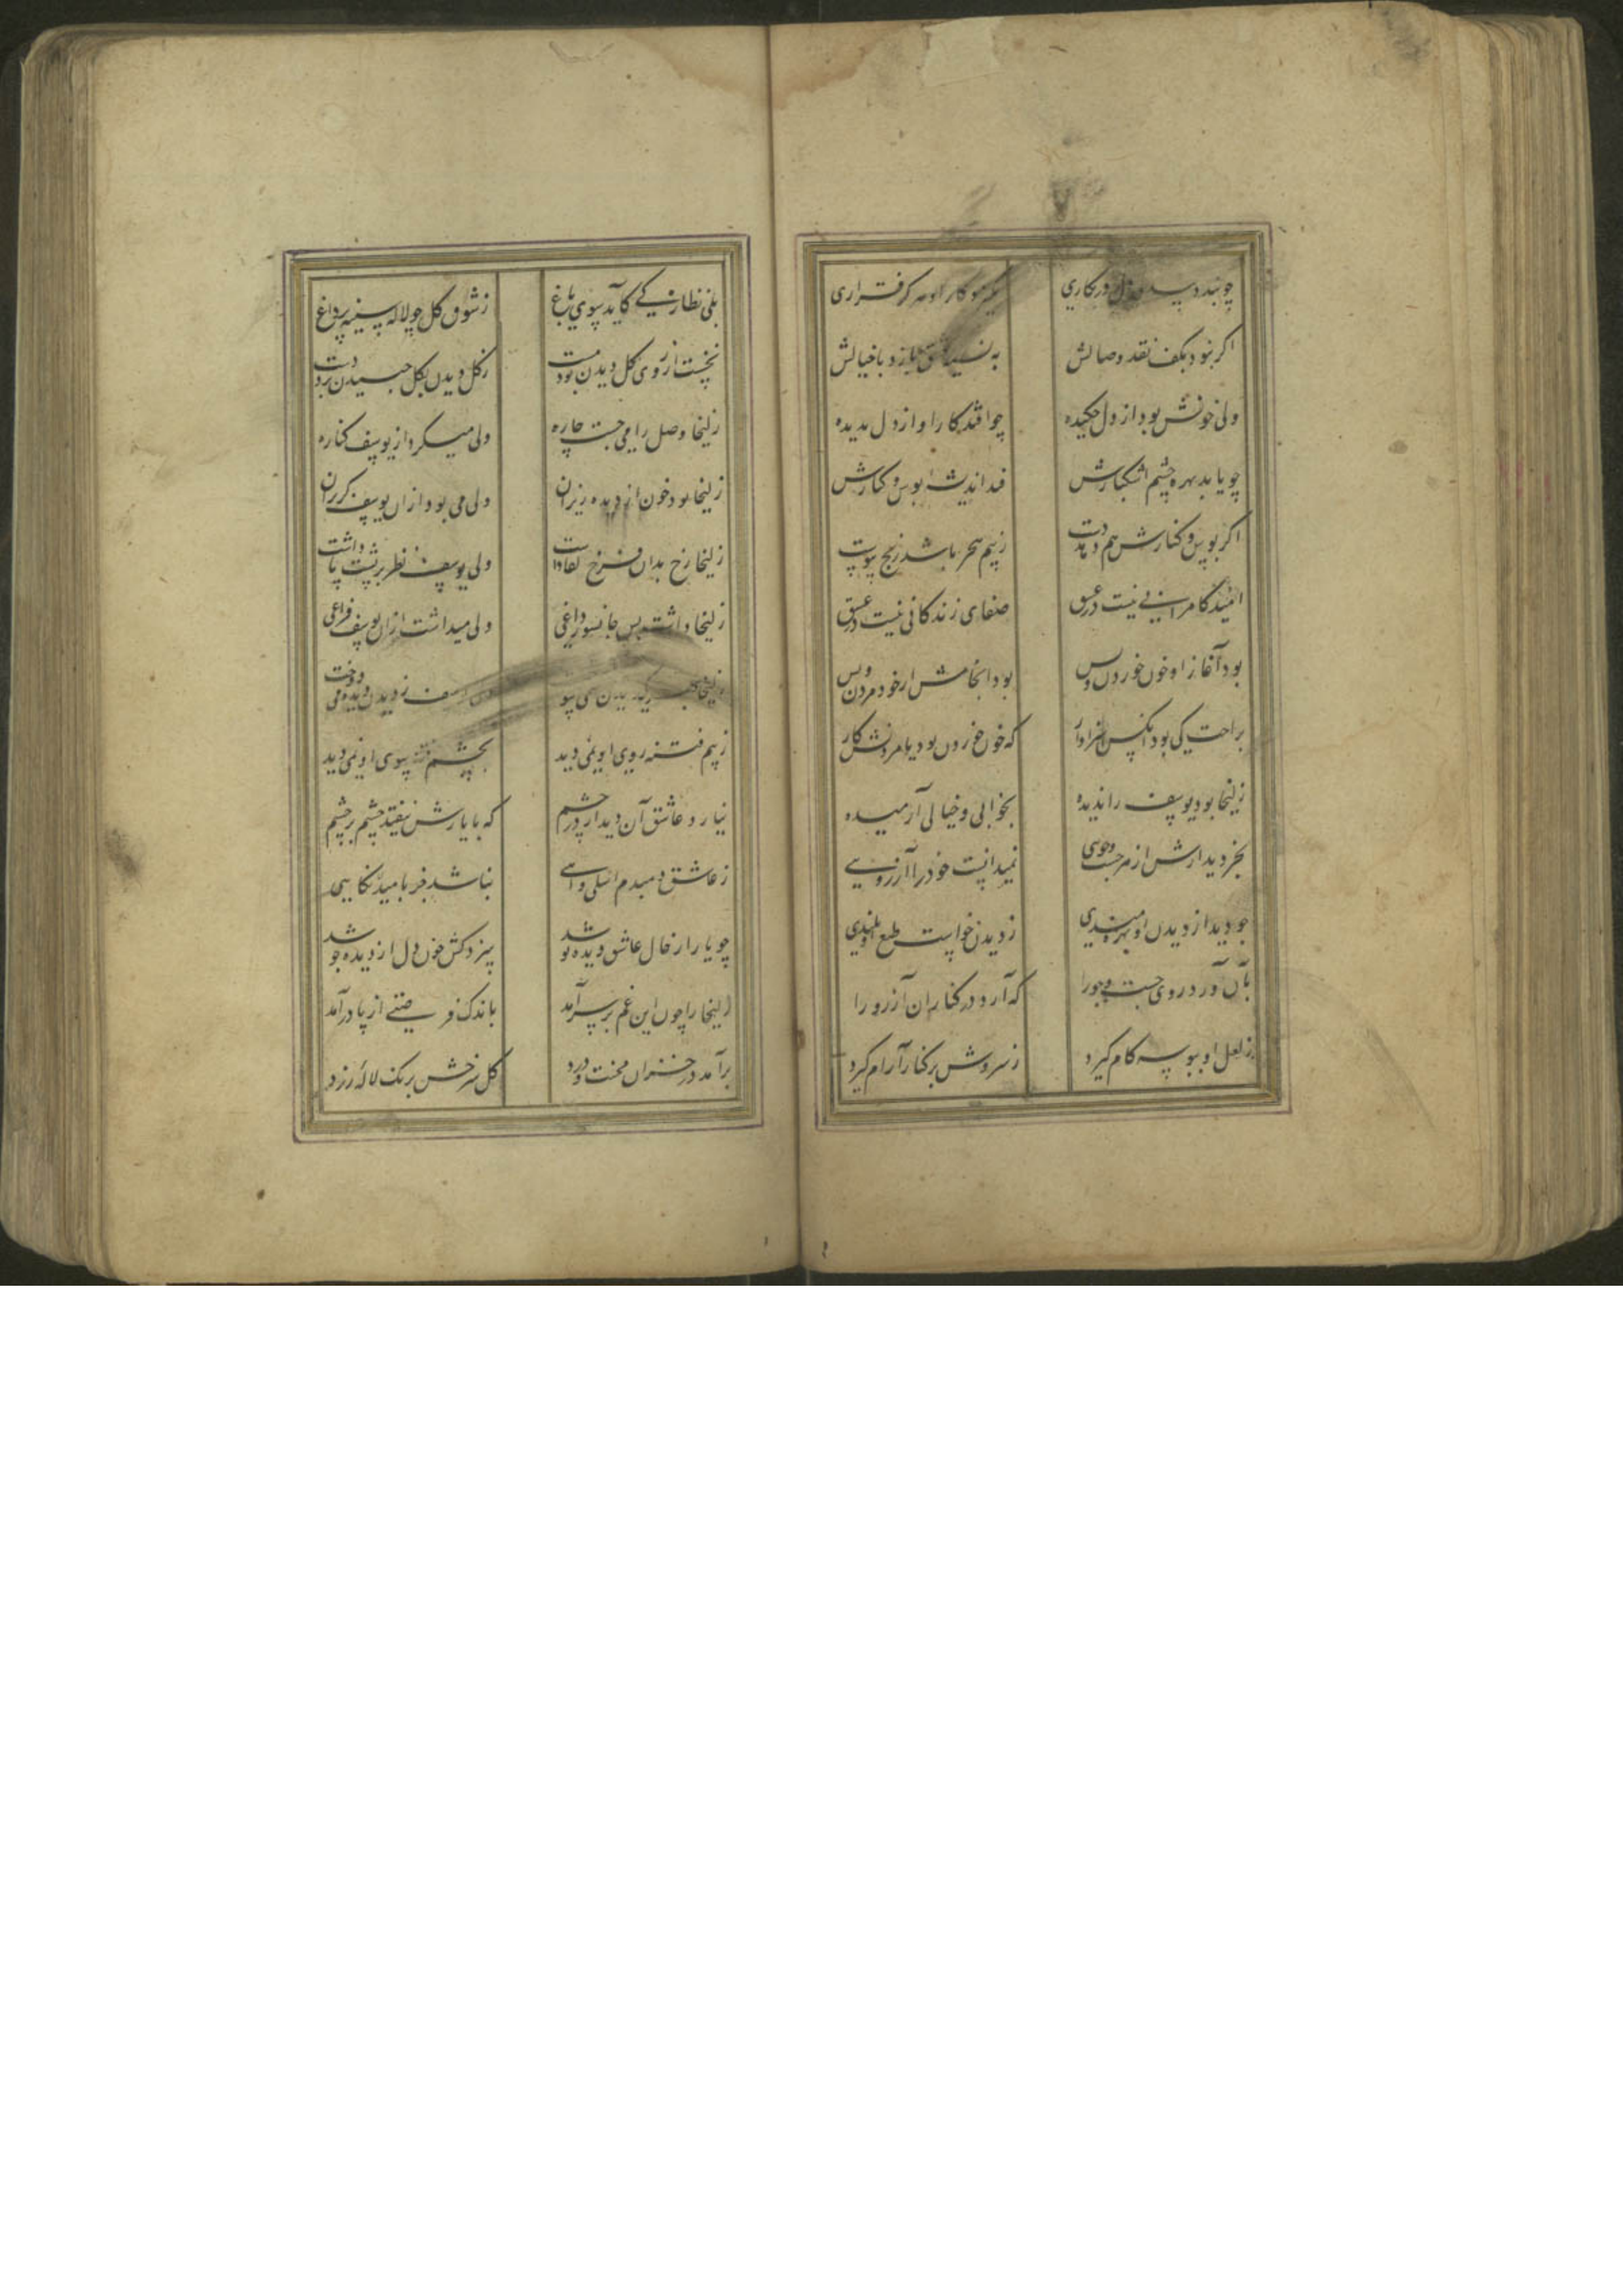 چو بندد بیدلی دل در نگاری
نگیرد کار او هرگز قراری
اگر نبود بکف نقد وصالش
به نسیه عشق بازد با خیالش
ولی خونش بود از دل چکیده
چو افتد کار او از دل بدیده
چو یابد بهره چشم اشکبارش
فتد اندیشه بوس و کنارش
اگر بوس و کنارش هم دهد دست
ز بیم هجر باشد رنج پیوست
امید کامرانی نیست در عشق
صفای زندگانی نیست در عشق
بود آغاز او خون خوردن و بس
بود انجامش از خود مردن و بس
براحت کی بود آنکس سزاوار
که خون خوردن بود یا مردنش کار
زلیخا بود یوسف را ندیده
بخوابی و خیالی آرمیده
بجز دیدارش از هر جست وجوی
نمیدانست خود را آرزویی
چو دید از دیدن او بهره مندی
ز دیدن خواست طبع او بلندی
بآن آورد روی جست وجو را
که آرد در کنار آن آرزو را
ز لعل او ببوسه کام گیرد
ز سروش بر کنار آرام گیرد
بلی نظارگی کاید بسوی باغ
ز شوق گل چو لاله سینه پر داغ
نخست از روی گل دیدن شود مست
ز گل دیدن بگل چیدن برد دست
زلیخا وصل را می جست چاره
ولی میکرد از یوسف کناره
زلیخا بود خون از دیده ریزان
ولی می بود ازان یوسف گریزان
زلیخا رخ بدان فرخ لقا داشت
ولی یوسف نظر بر پشت پا داشت
زلیخا داشت بس جانسوز داغی
ولی میداشت ازان یوسف فراغی
زلیخا بهر یک دیدن همی سوخت
ولی یوسف ز دیدن دیده می دوخت
ز بیم فتنه روی او نمی دید
بچشم فتنه سوی او نمی دید
نیارد عاشق آن دیدار در چشم
که با یارش نیفتد چشم بر چشم
ز عاشق دمبدم اشکی و آهی
نباشد جز بامید نگاهی
چو یار از حال عاشق دیده پوشد
سزد کش خون دل از دیده جوشد
زلیخا را چون این غم بر سر آمد
باندک فرصتی از پا در آمد
برآمد در خزان محنت و درد
گل سرخش برنگ لاله زرد